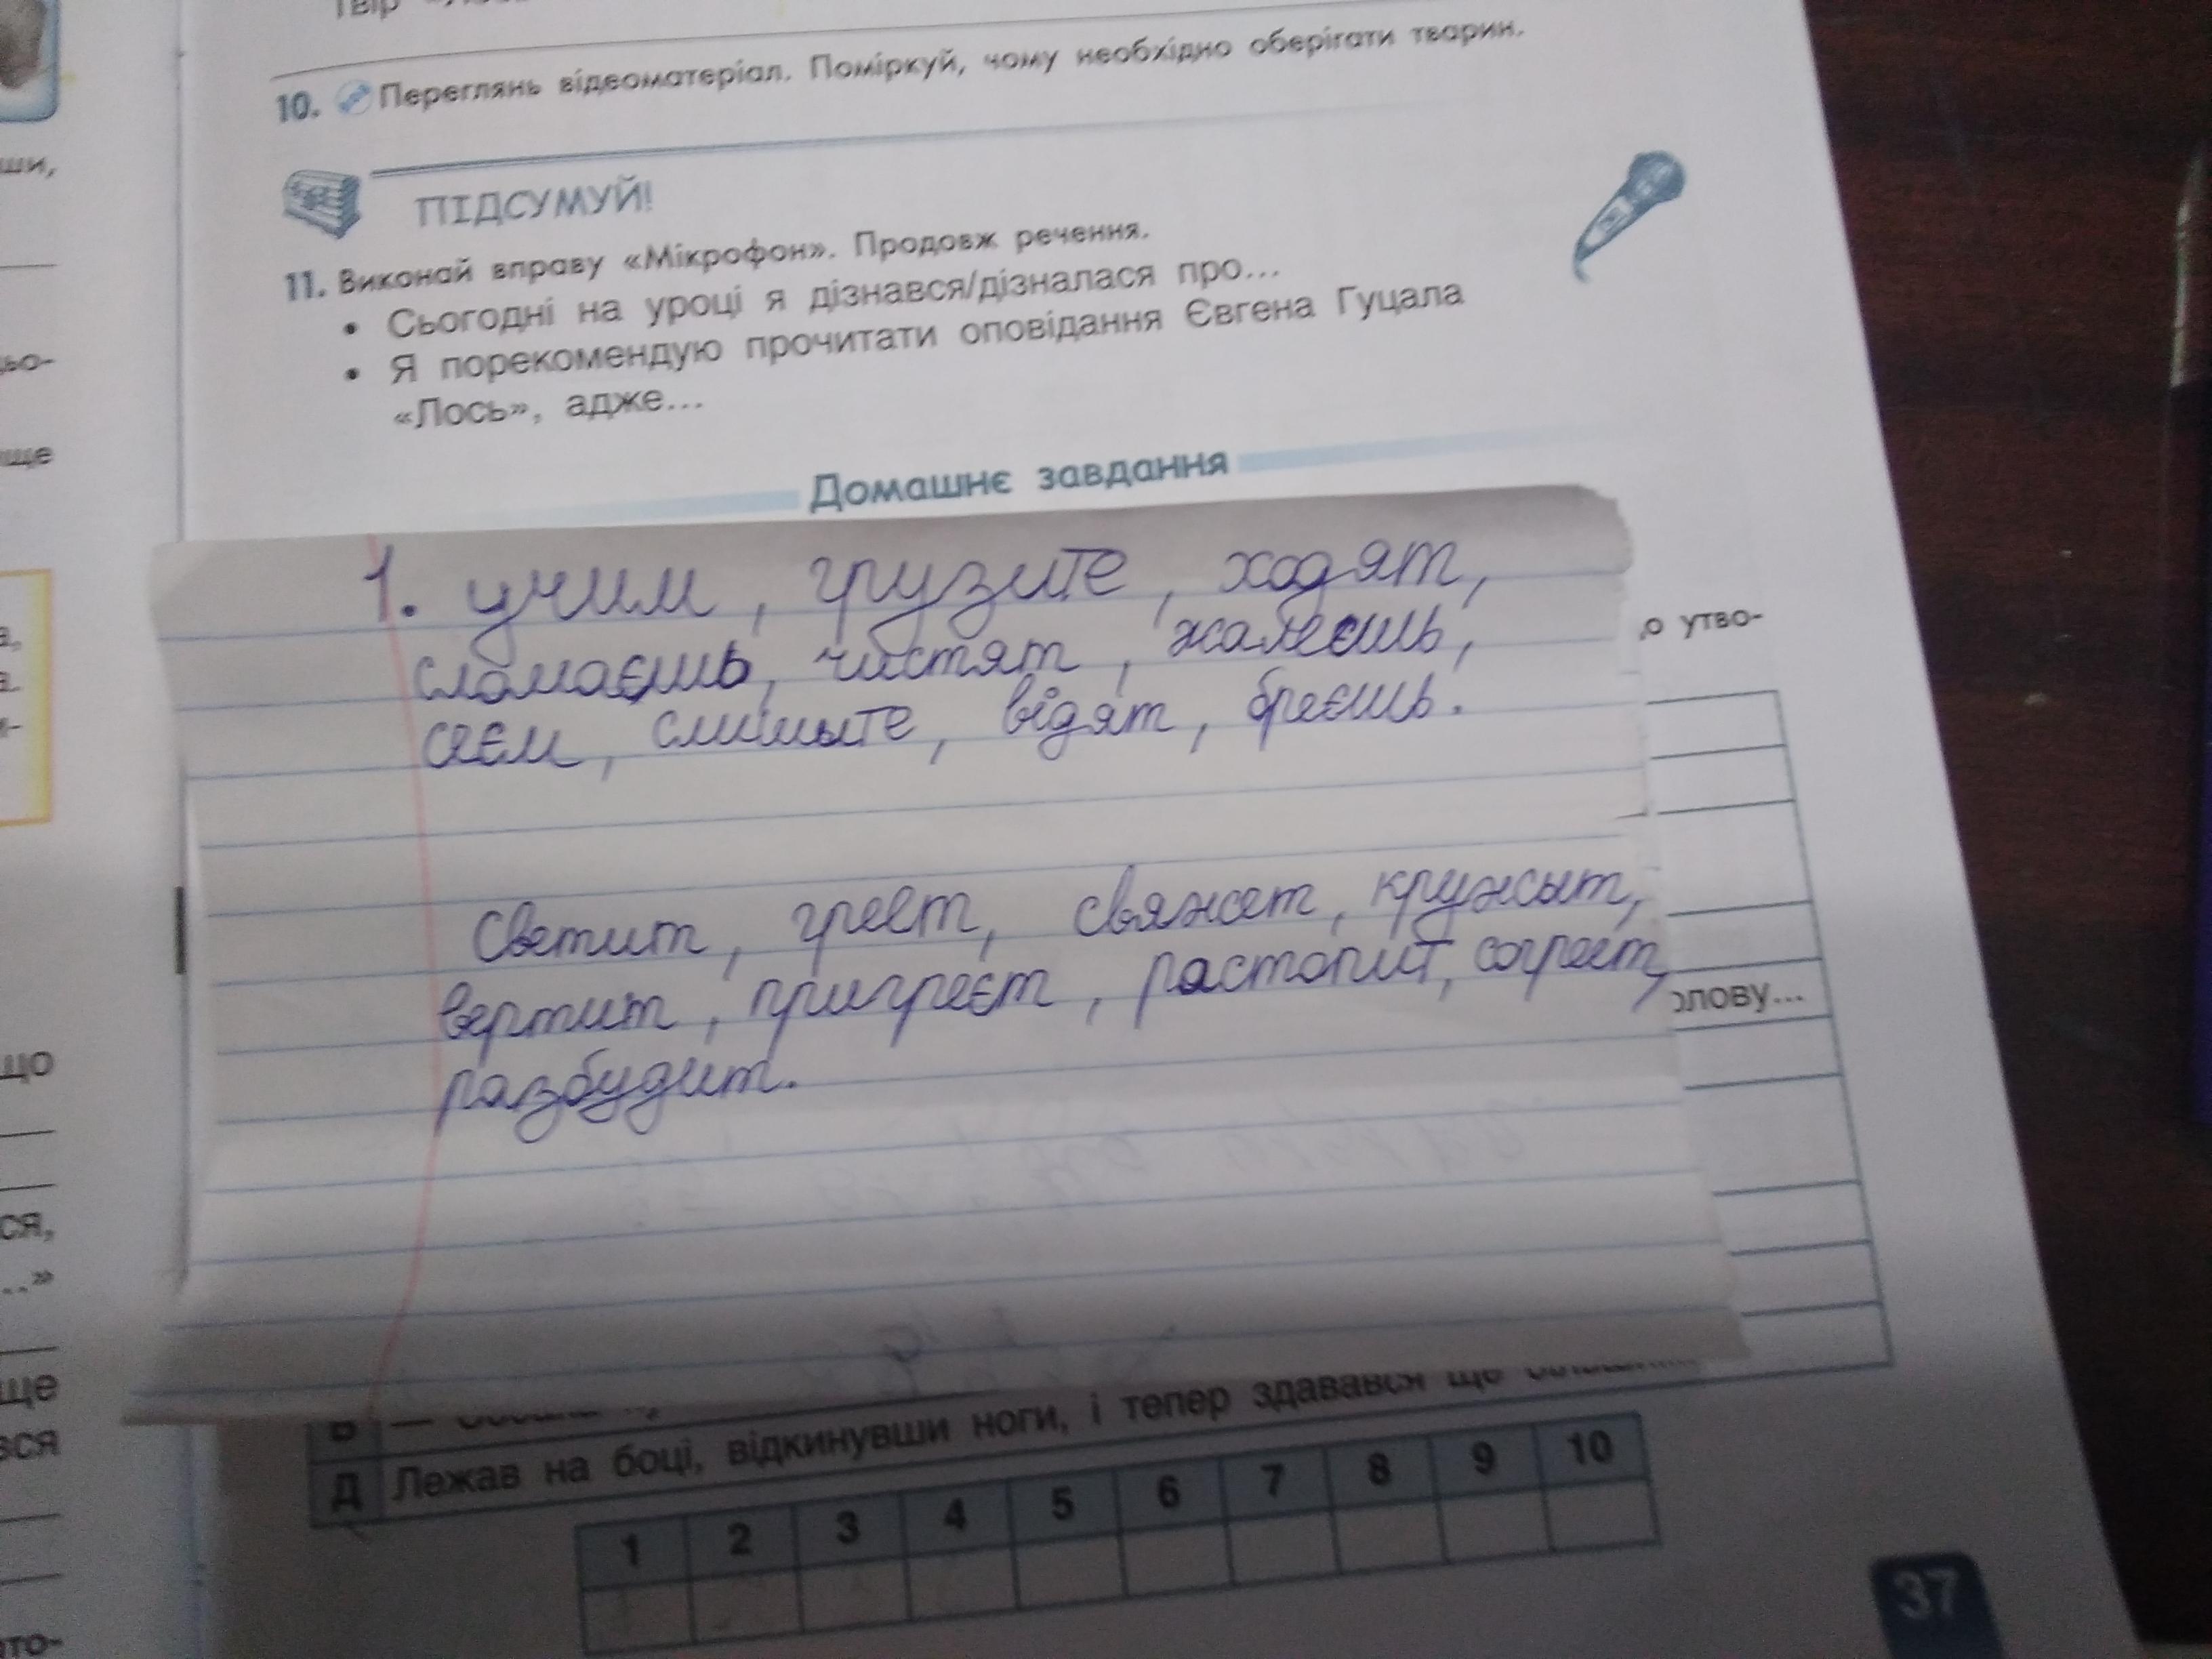 10. Переглянь відеоматеріал. Поміркуй, чому необхідно оберігати тварин.
ПІДСУМУЙ!
11. Виконай вправу «Мікрофон». Продовж речення.
• Сьогодні на уроці я дізнався/дізналася про...
• Я порекомендую прочитати оповідання Євгена Гуцала
«Лось», адже...
Домашнє завдання
1. учим, грузите, ходят,
сломаєшь, чистят, жалеешь,
сеєм, слишыте, відят, бреєшь.
Светит, греет, свяжет, кружыт,
вертит, пригреєт, растопит, согреет,
разбудит.
утво-
олову...
Д Лежав на боці, відкинувши ноги, і тепер здавався ще
1 2 3 4 5 6 7 8 9 10
37
ши,
ьо-
ще
що
ся,
..»
ще
вся